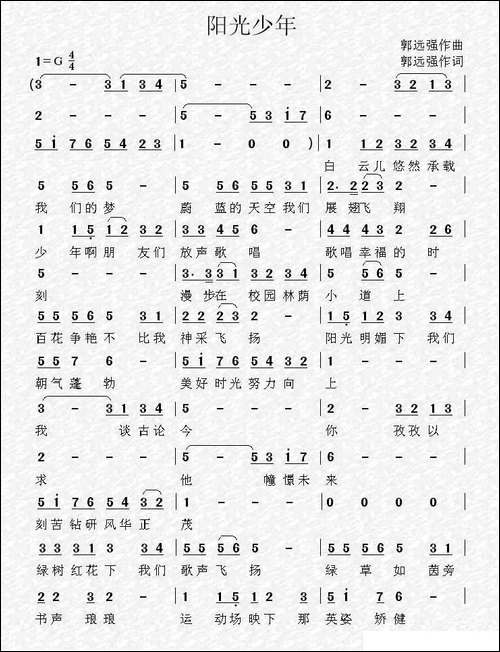 阳光少年
郭远强作曲
1=G 4/4 郭远强作词
(3 - 31 34 | 5 - - - | 2 - 32 13 |
2 - - - | 5 - 53 i7 | 6 - - - |
5i 76 54 23 | 1 - 0 0 ) | 1 12 32 34 |
白 云儿 悠然 承载
5 56 5 - | 5 56 55 31 | 2. 2 23 2 - |
我 们的 梦 蔚 蓝的 天空 我们 展 翅飞 翔
1 15 12 32 | 23 22 1 - | 44 43 2 26 |
少 年啊 朋 友们 放声 歌 唱 歌唱 幸福 的 时
5 - - - | 3. 3 31 32 34 | 5 56 5 - |
刻 漫 步在 校园 林荫 小 道 上
55 56 53 34 | 22 23 2 - | 15 12 3 34 |
百花 争艳 不 比我 神采 飞 扬 阳光 明媚 下 我们
55 7 6 - | 5i 76 54 32 | 1 - - - |
朝气 蓬 勃 美好 时光 努力 向 上
3 - 31 34 | 5 - - - | 2 - 32 13 |
我 谈古 论 今 你 孜孜 以
2 - - - | 5 - 53 i7 | 6 - - - |
求 他 幢 憬未 来
5i 76 54 32 | 1 - - - | 0 0 0 0 |
刻苦 钻研 风华 正 茂
33 31 3 34 | 55 56 5 - | 55 56 5 31 |
绿树 红花 下 我们 歌声 飞 扬 绿 草 如 茵旁
22 32 2 - | 1 15 12 3 2 | 5i 7 6 - |
书声 琅 琅 运 动场 映下 那 英姿 矫 健